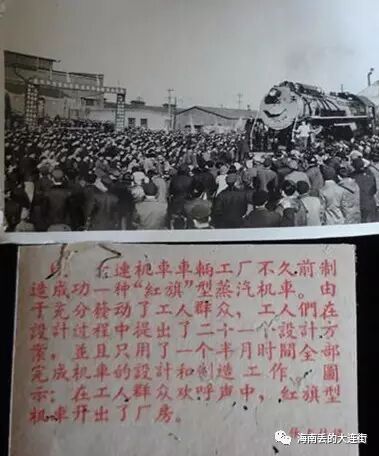 连机车车辆工厂不久前制
造成功一种“红旗”型蒸汽机车。由
于充分发动了工人群众，工人們在
設計过程中提出了二十一个設計方
案，並且只用了一个半月时間全部
完成机車的設計和创造工作。图
示：在工人群众欢呼声中，紅旗型
机車开出了厂房。
海南丢的大连街